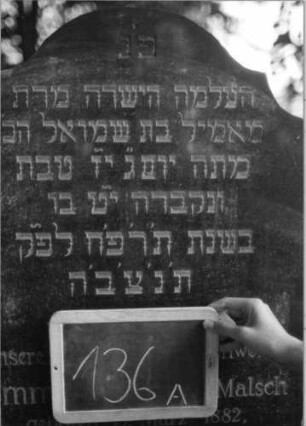 פ״נ
העלמה הישרה מרת
מאמיל בת שמואל הכ
מתה יום ג׳ י״ז טבת
ונקברה י״ט בו
בשנת ת׳ר׳פ׳ח׳ לפ״ק
ת׳נ׳צ׳ב׳ה
136 A
Malsch
1882,